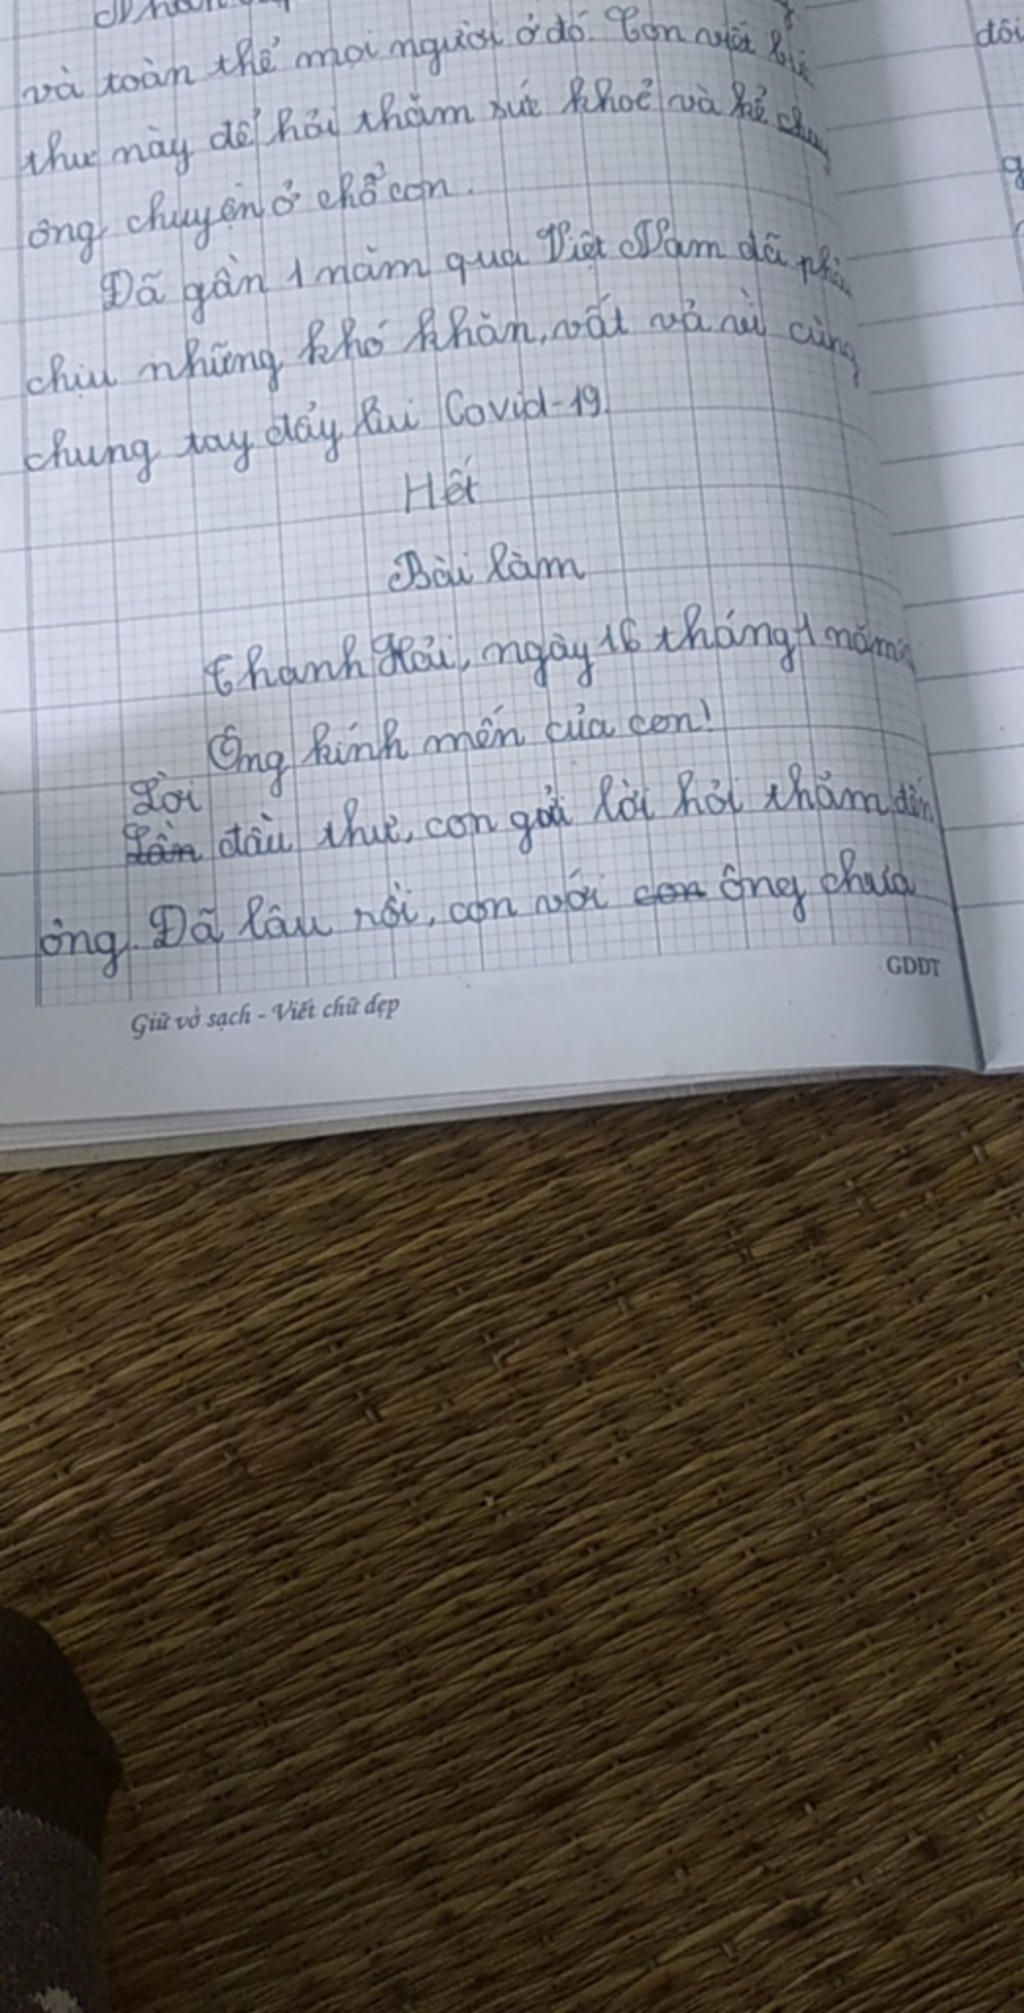 và toàn thể mọi người ở đó. Con viết
thư này để hỏi thăm sức khoẻ và kể
ông chuyện ở chỗ con.
Đã gần 1 năm qua Việt Nam đã
chịu những khó khăn, vất vả cùng
chung tay đẩy lùi Covid-19.
Hết
Bài làm
Thanh Hải, ngày 16 tháng 1 năm
Ông kính mến của con!
Lời
Lần đầu thư, con gởi lời hỏi thăm đến
ông. Đã lâu rồi, con với con ông chưa
GDĐT
Giữ vở sạch - Viết chữ đẹp
đôi